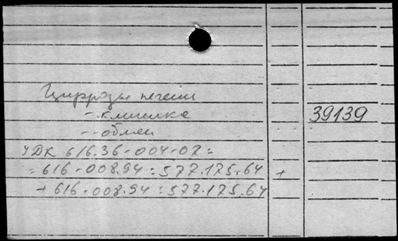 Циррозы печени
- клиника
- обмен
39139
УДК 616.36-004-02=
=616-008.94:577.175.64 +
+616-008.94:577.175.64